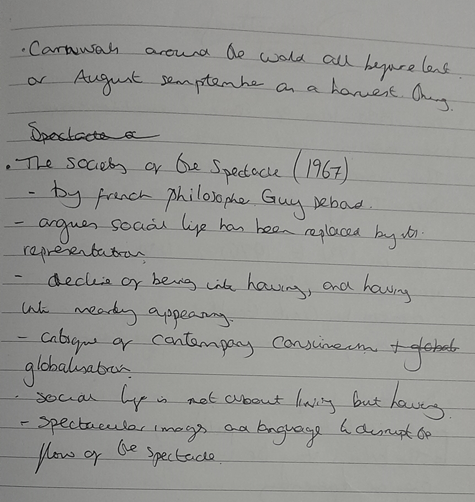 · Carnivals around the world all before lent
or August semptember as a harvest thing.
Spectacle
· The society of the Spectacle (1967)
- by french philosopher Guy Debord.
- argues social life has been replaced by its
representation.
- decline of being into having, and having
into merely appearing.
- critique of contempory consumerism + global
globalisation.
· social life is not about living but having.
- spectacular images and language to disrupt the
flow of the spectacle.